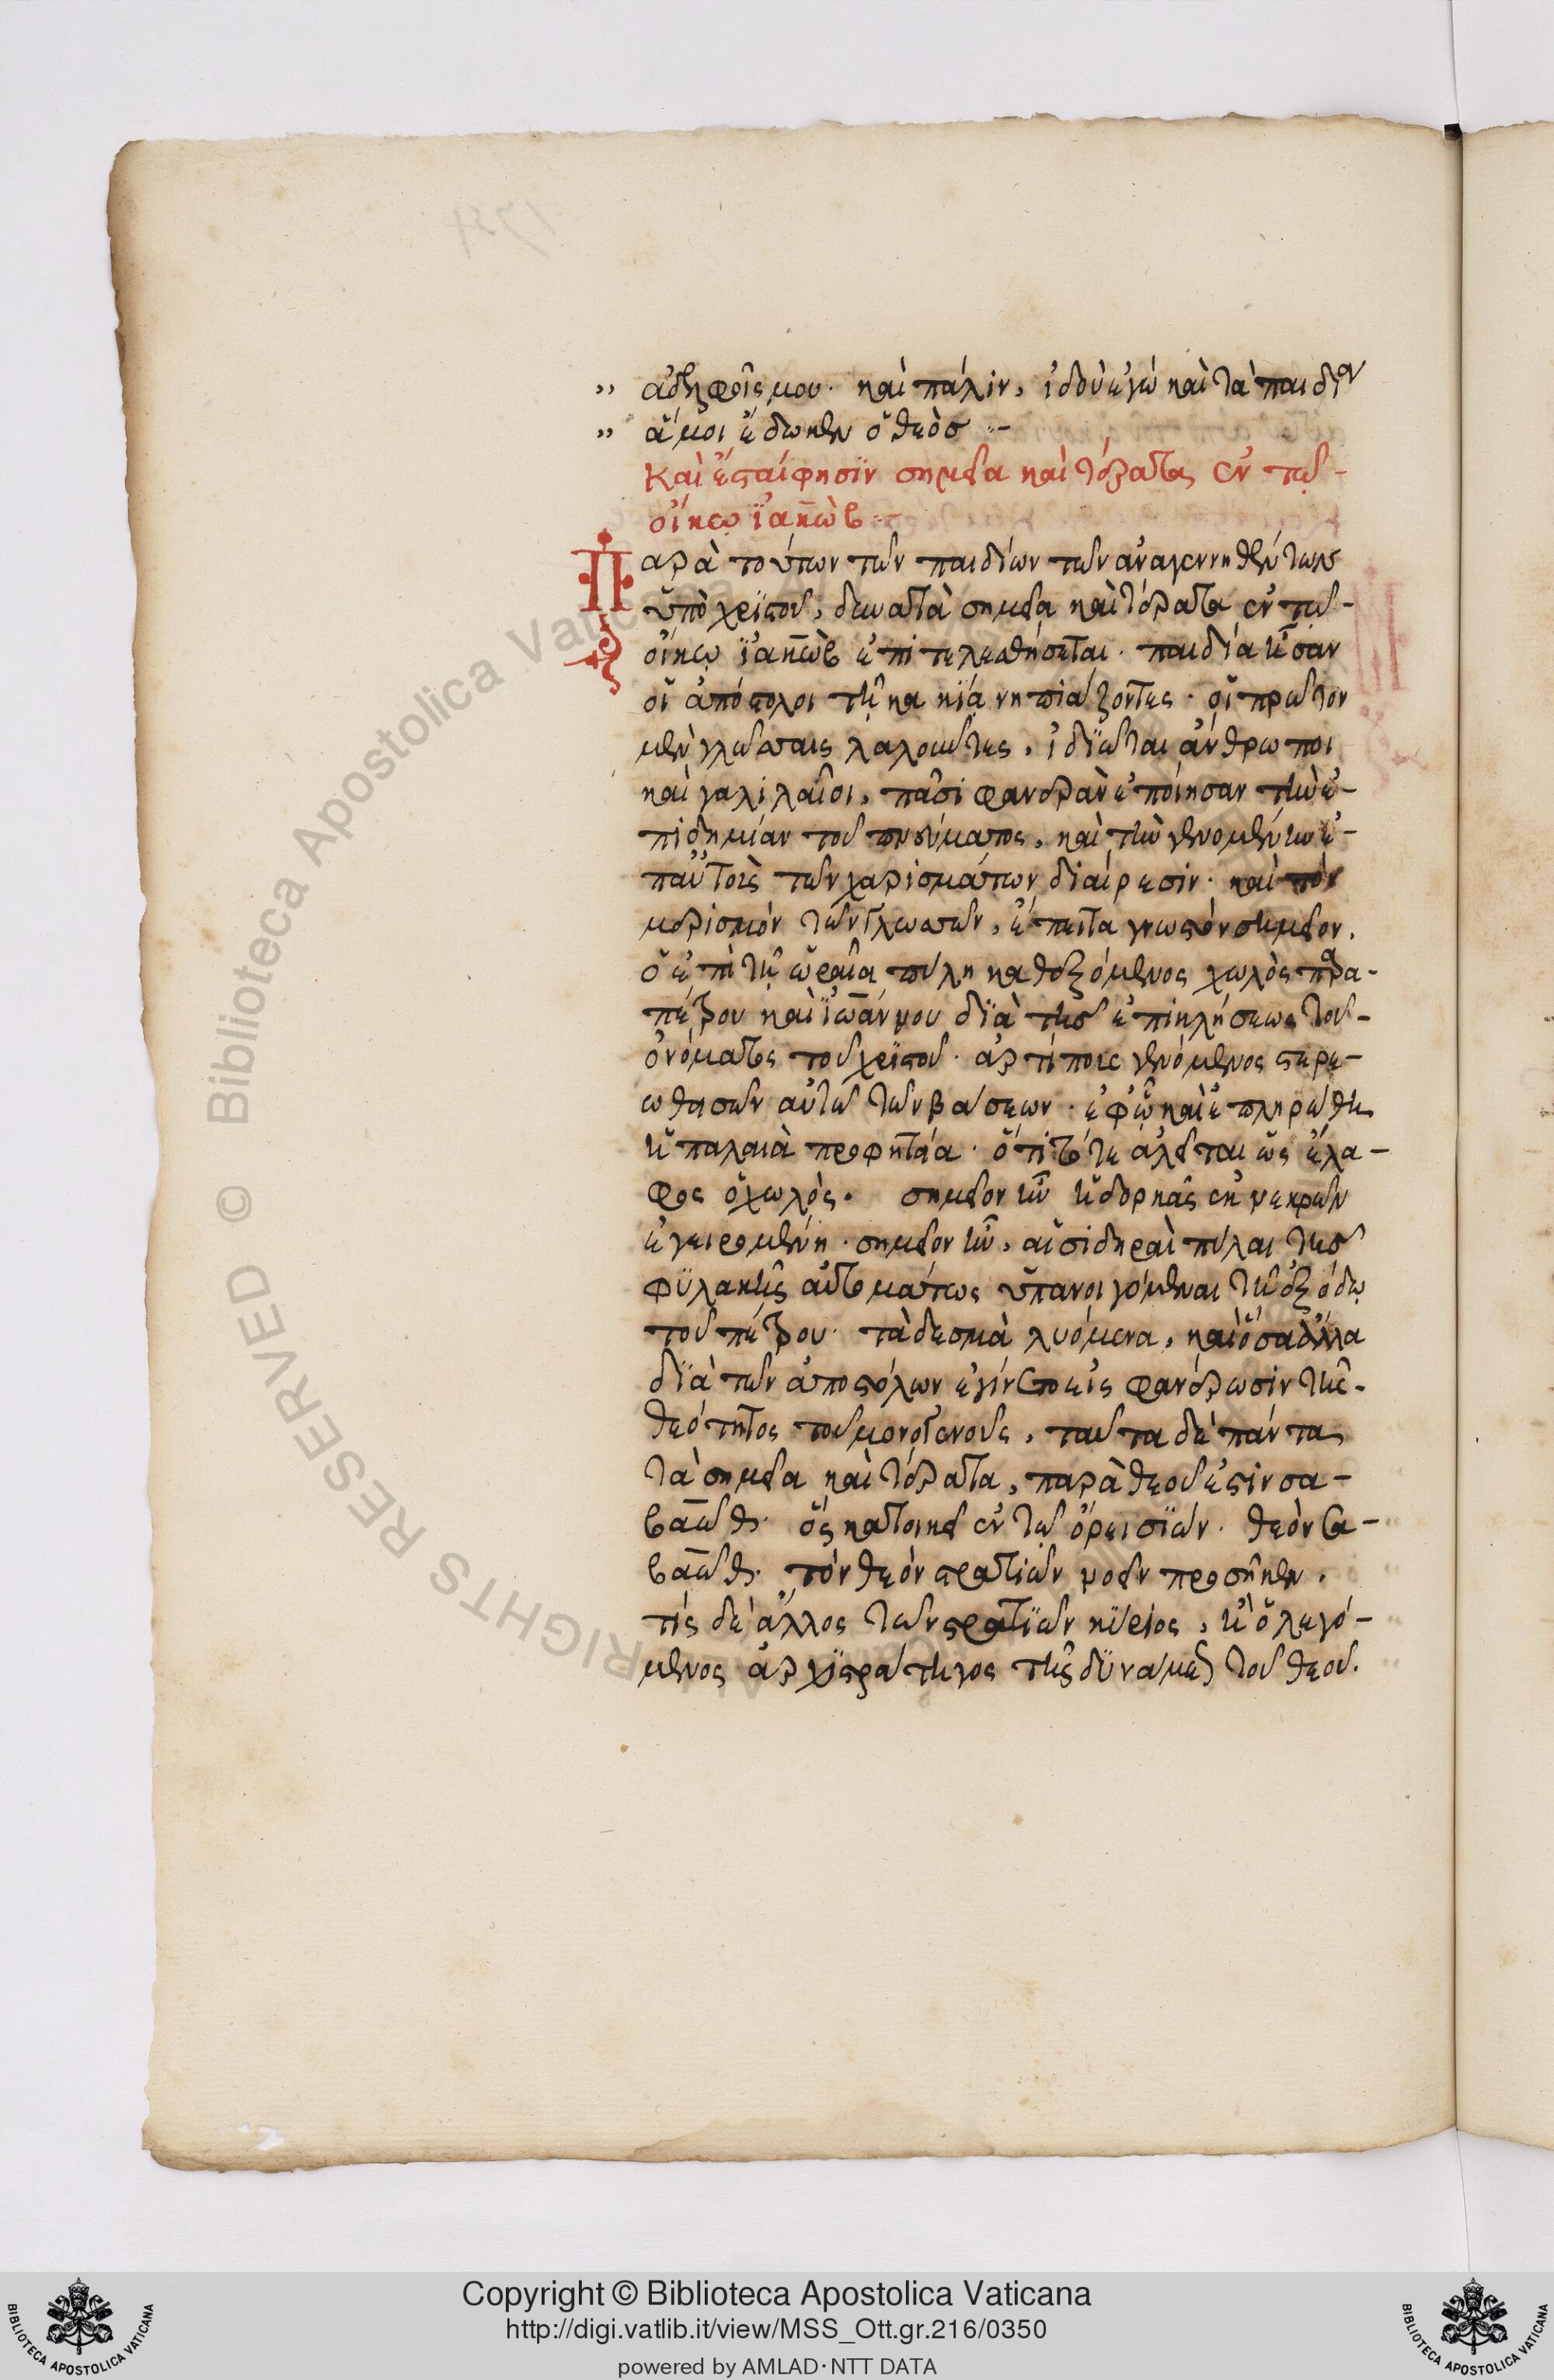 ἀδελφοῖς μου· καὶ πάλιν, ἰδοὺ ἐγὼ καὶ τὰ παιδία
ἅ μοι ἔδωκεν ὁ θεὸσ :–
Καὶ ἔσται φησὶν σημεῖα καὶ τέρατα ἐν τῷ
οἴκῳ ϊακὼβ :–
Παρὰ τούτων τῶν παιδίων τῶν ἀναγεννηθέντων
ὑπὸ χριστοῦ, δυνατὰ σημεῖα καὶ τέρατα ἐν τῷ
οἴκῳ ϊακὼβ ἐπιτελεσθήσεται· παιδία ἦσαν
οἱ ἀπόστολοι τῇ κακίᾳ νηπιάζοντες· οἳ πρῶτον
μὲν γλώσσαις λαλοῦντες, ἰδιῶται ἄνθρωποι
καὶ γαλιλαῖοι, πᾶσι φανερὰν ἐποίησαν τὴν ἐ–
πιδημίαν τοῦ πνεύματος, καὶ τὴν γενομένην ἐ–
π αὐτοῖς τῶν χαρισμάτων διαίρεσιν· καὶ τὸν
μερισμὸν τῶν γλωσσῶν, ἔπειτα γνωστὸν σημεῖον,
ὁ ἐπὶ τῇ ὡραίᾳ πύλῃ καθεζόμενος χωλὸς παρὰ–
πέτρου καὶ ϊωάννου διὰ τῆσ ἐπικλήσεως τοῦ–
ὀνόματος τοῦ χριστοῦ· ἀρτίπους γενόμενος στερε–
ωθεισῶν αὐτῶ τῶν βάσεων· ἐφ ᾧ καὶ ἐπληρώθη
ἡ παλαιὰ προφητεία· ὅτι τότε ἁλεῖται ὡς ἔλα–
φος ὁ χωλὸς. σημεῖον ἦν ἡ δορκὰς ἐκ νεκρῶν
ἐγειρομένη· σημεῖον ἦν, αἱ σιδηραὶ πύλαι τῆσ
φυλακῆς αὐτομάτως ὑπανοιγόμεναι τῇ ἐξόδῳ
τοῦ πέτρου· τὰ δεσμὰ λυόμενα, καὶ ὅσα ἄλλα
διὰ τῶν ἀποστόλων ἐγίνετο εἰς φανέρωσιν τῆς
θεότητος τοῦ μονογενοῦς, ταῦτα δὲ πάντα
τὰ σημεῖα καὶ τέρατα, παρὰ θεοῦ ἐστιν σα–
βαὼθ· ὃς κατοικεῖ ἐν τῷ ὄρει σιών· θεὸν σα–
βαὼθ· τὸν θεὸν στρατιῶν νοεῖν προσῆκεν,
τίς δὲ ἄλλος τῶν στρατιῶν κύριος, ἢ ὁ λεγό–
μενος ἀρχιστράτηγος τῆς δυνάμεως τοῦ θεοῦ.
Copyright © Biblioteca Apostolica Vaticana
http://digi.vatlib.it/view/MSS_Ott.gr.216/0350
powered by AMLAD·NTT DATA